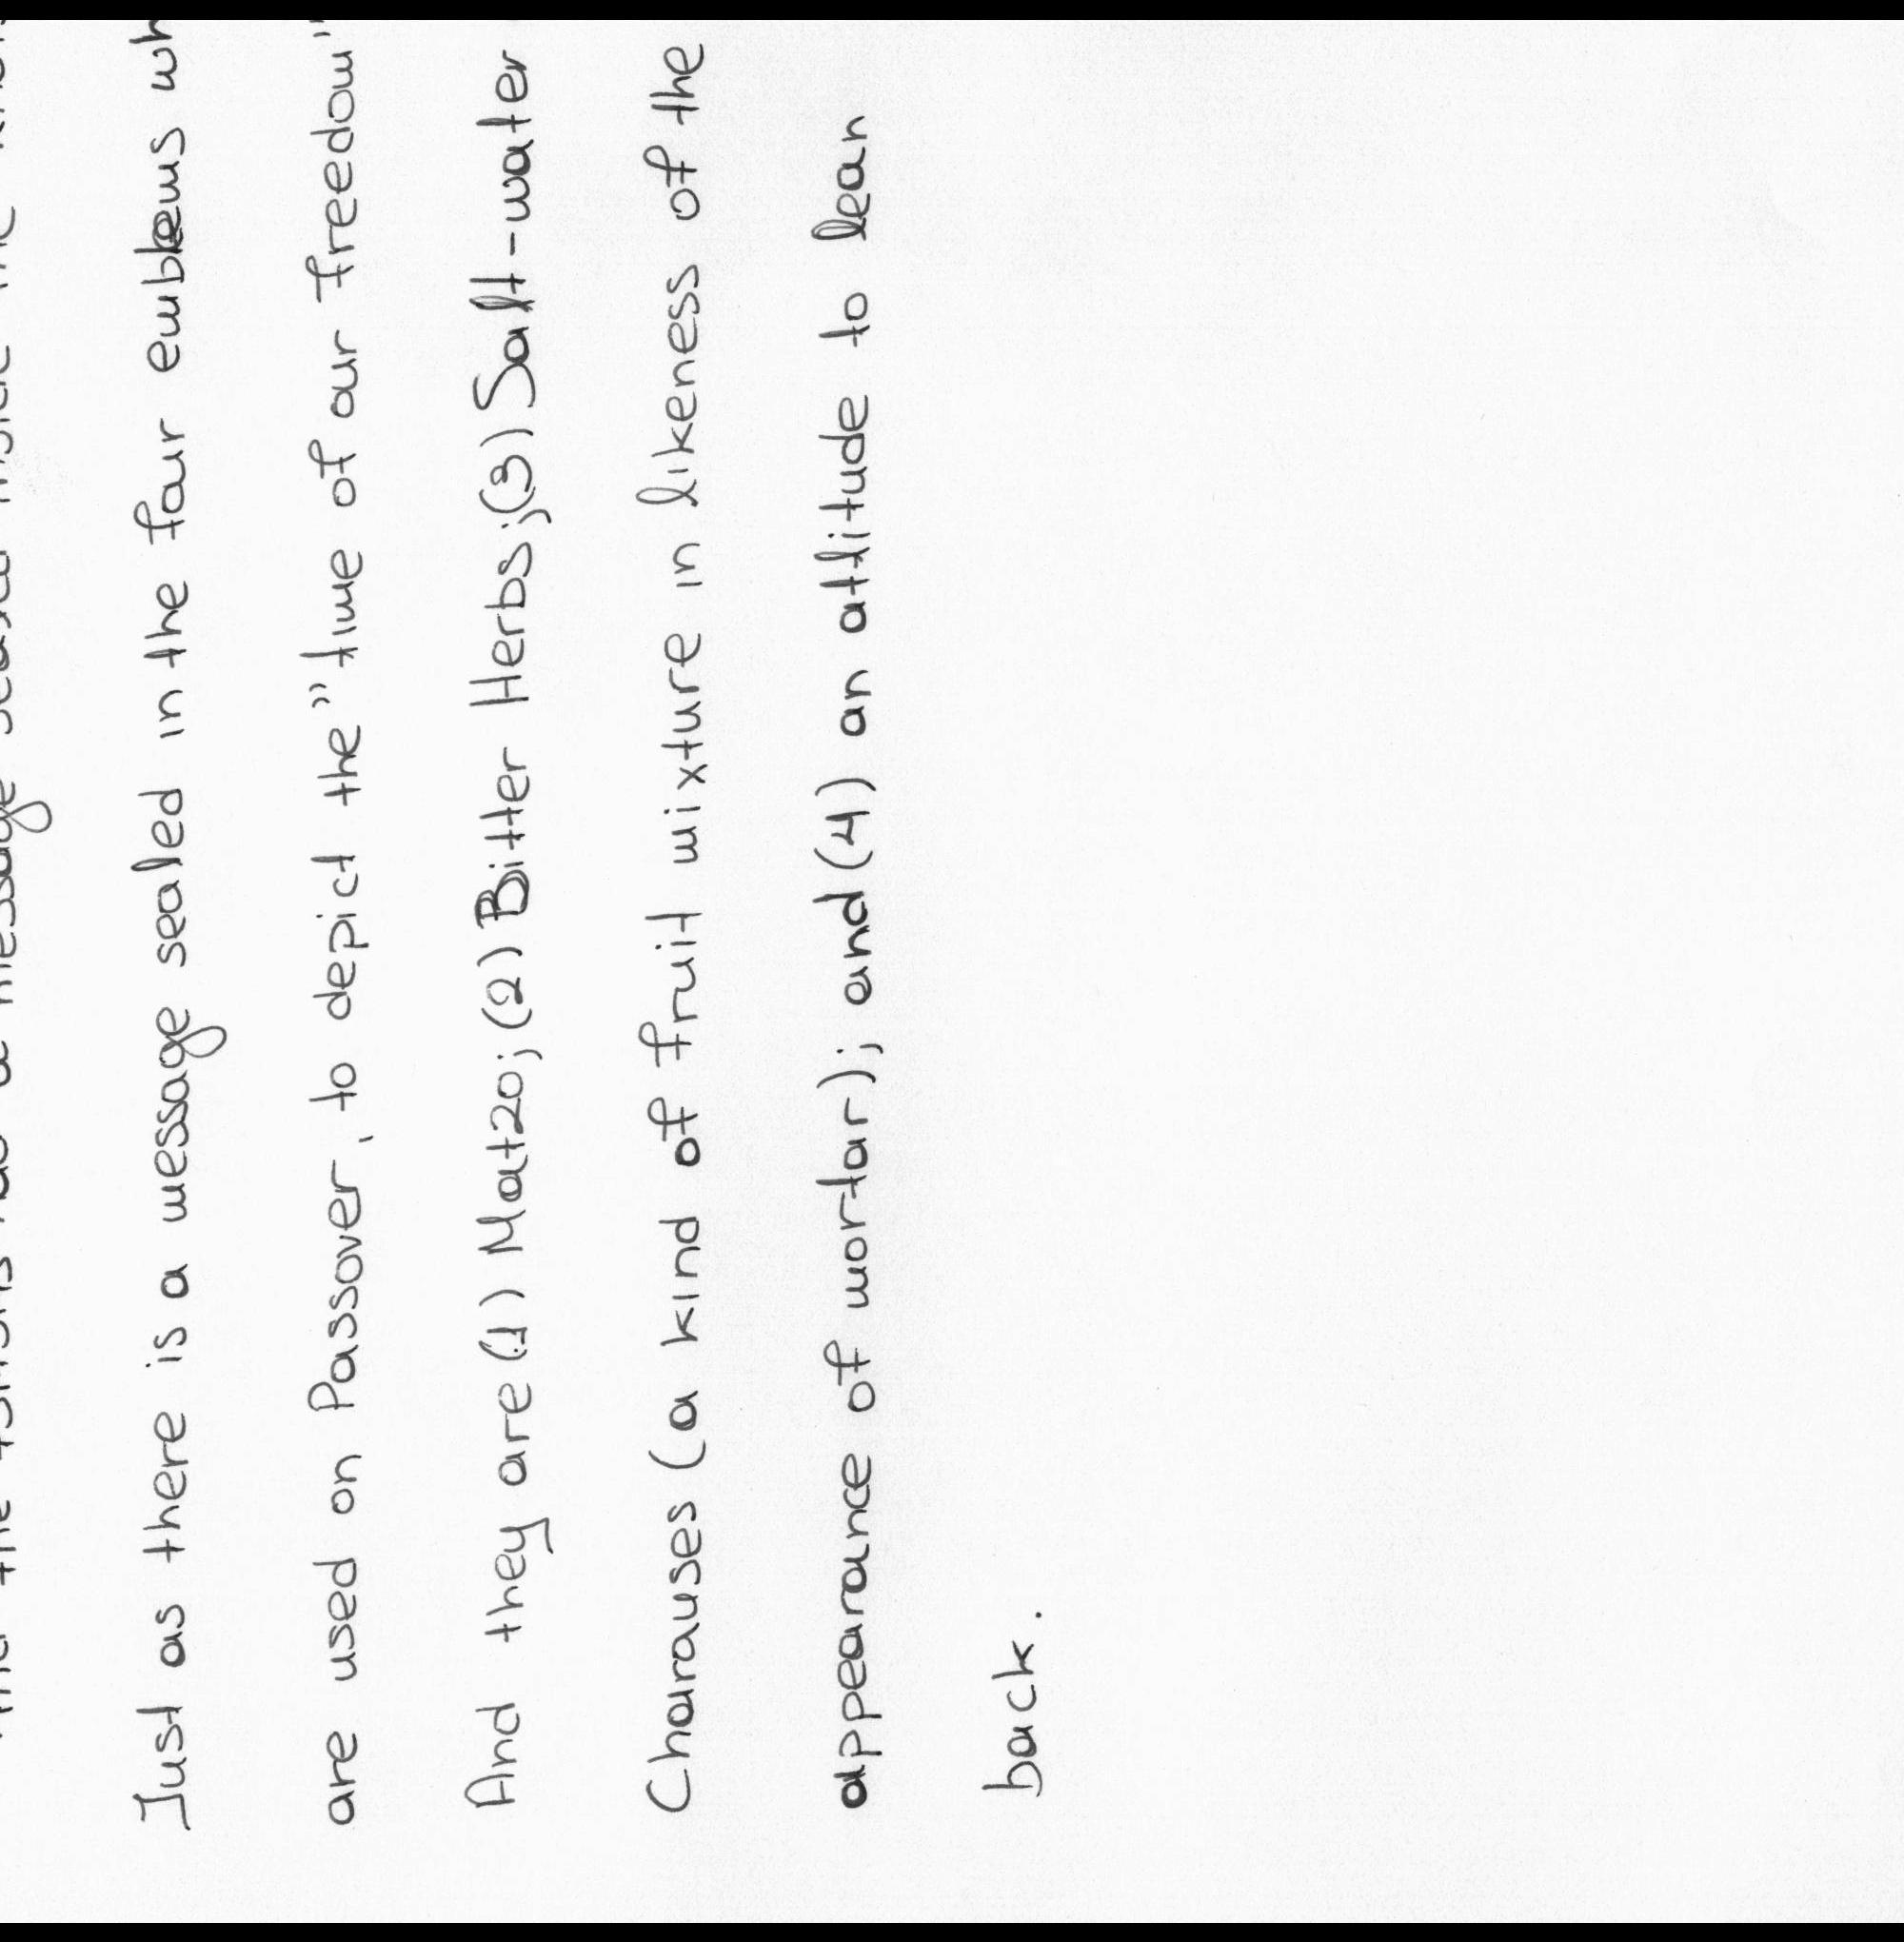 a message sealed inside the
Just as there is a message sealed in the four emblems
are used on Passover, to depict the "time of our freedom"
And they are (1) Matzo; (2) Bitter Herbs; (3) Salt-water
Charauses (a kind of fruit mixture in likeness of the
appearance of mortar); and (4) an attitude to lean
back.